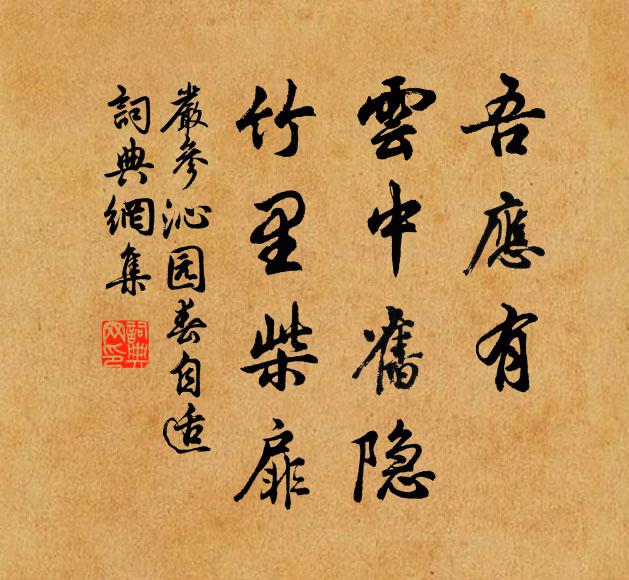 吾應有
雲中舊隐
竹里柴扉
嚴參沁园春自适
詞典網集
詞典网印